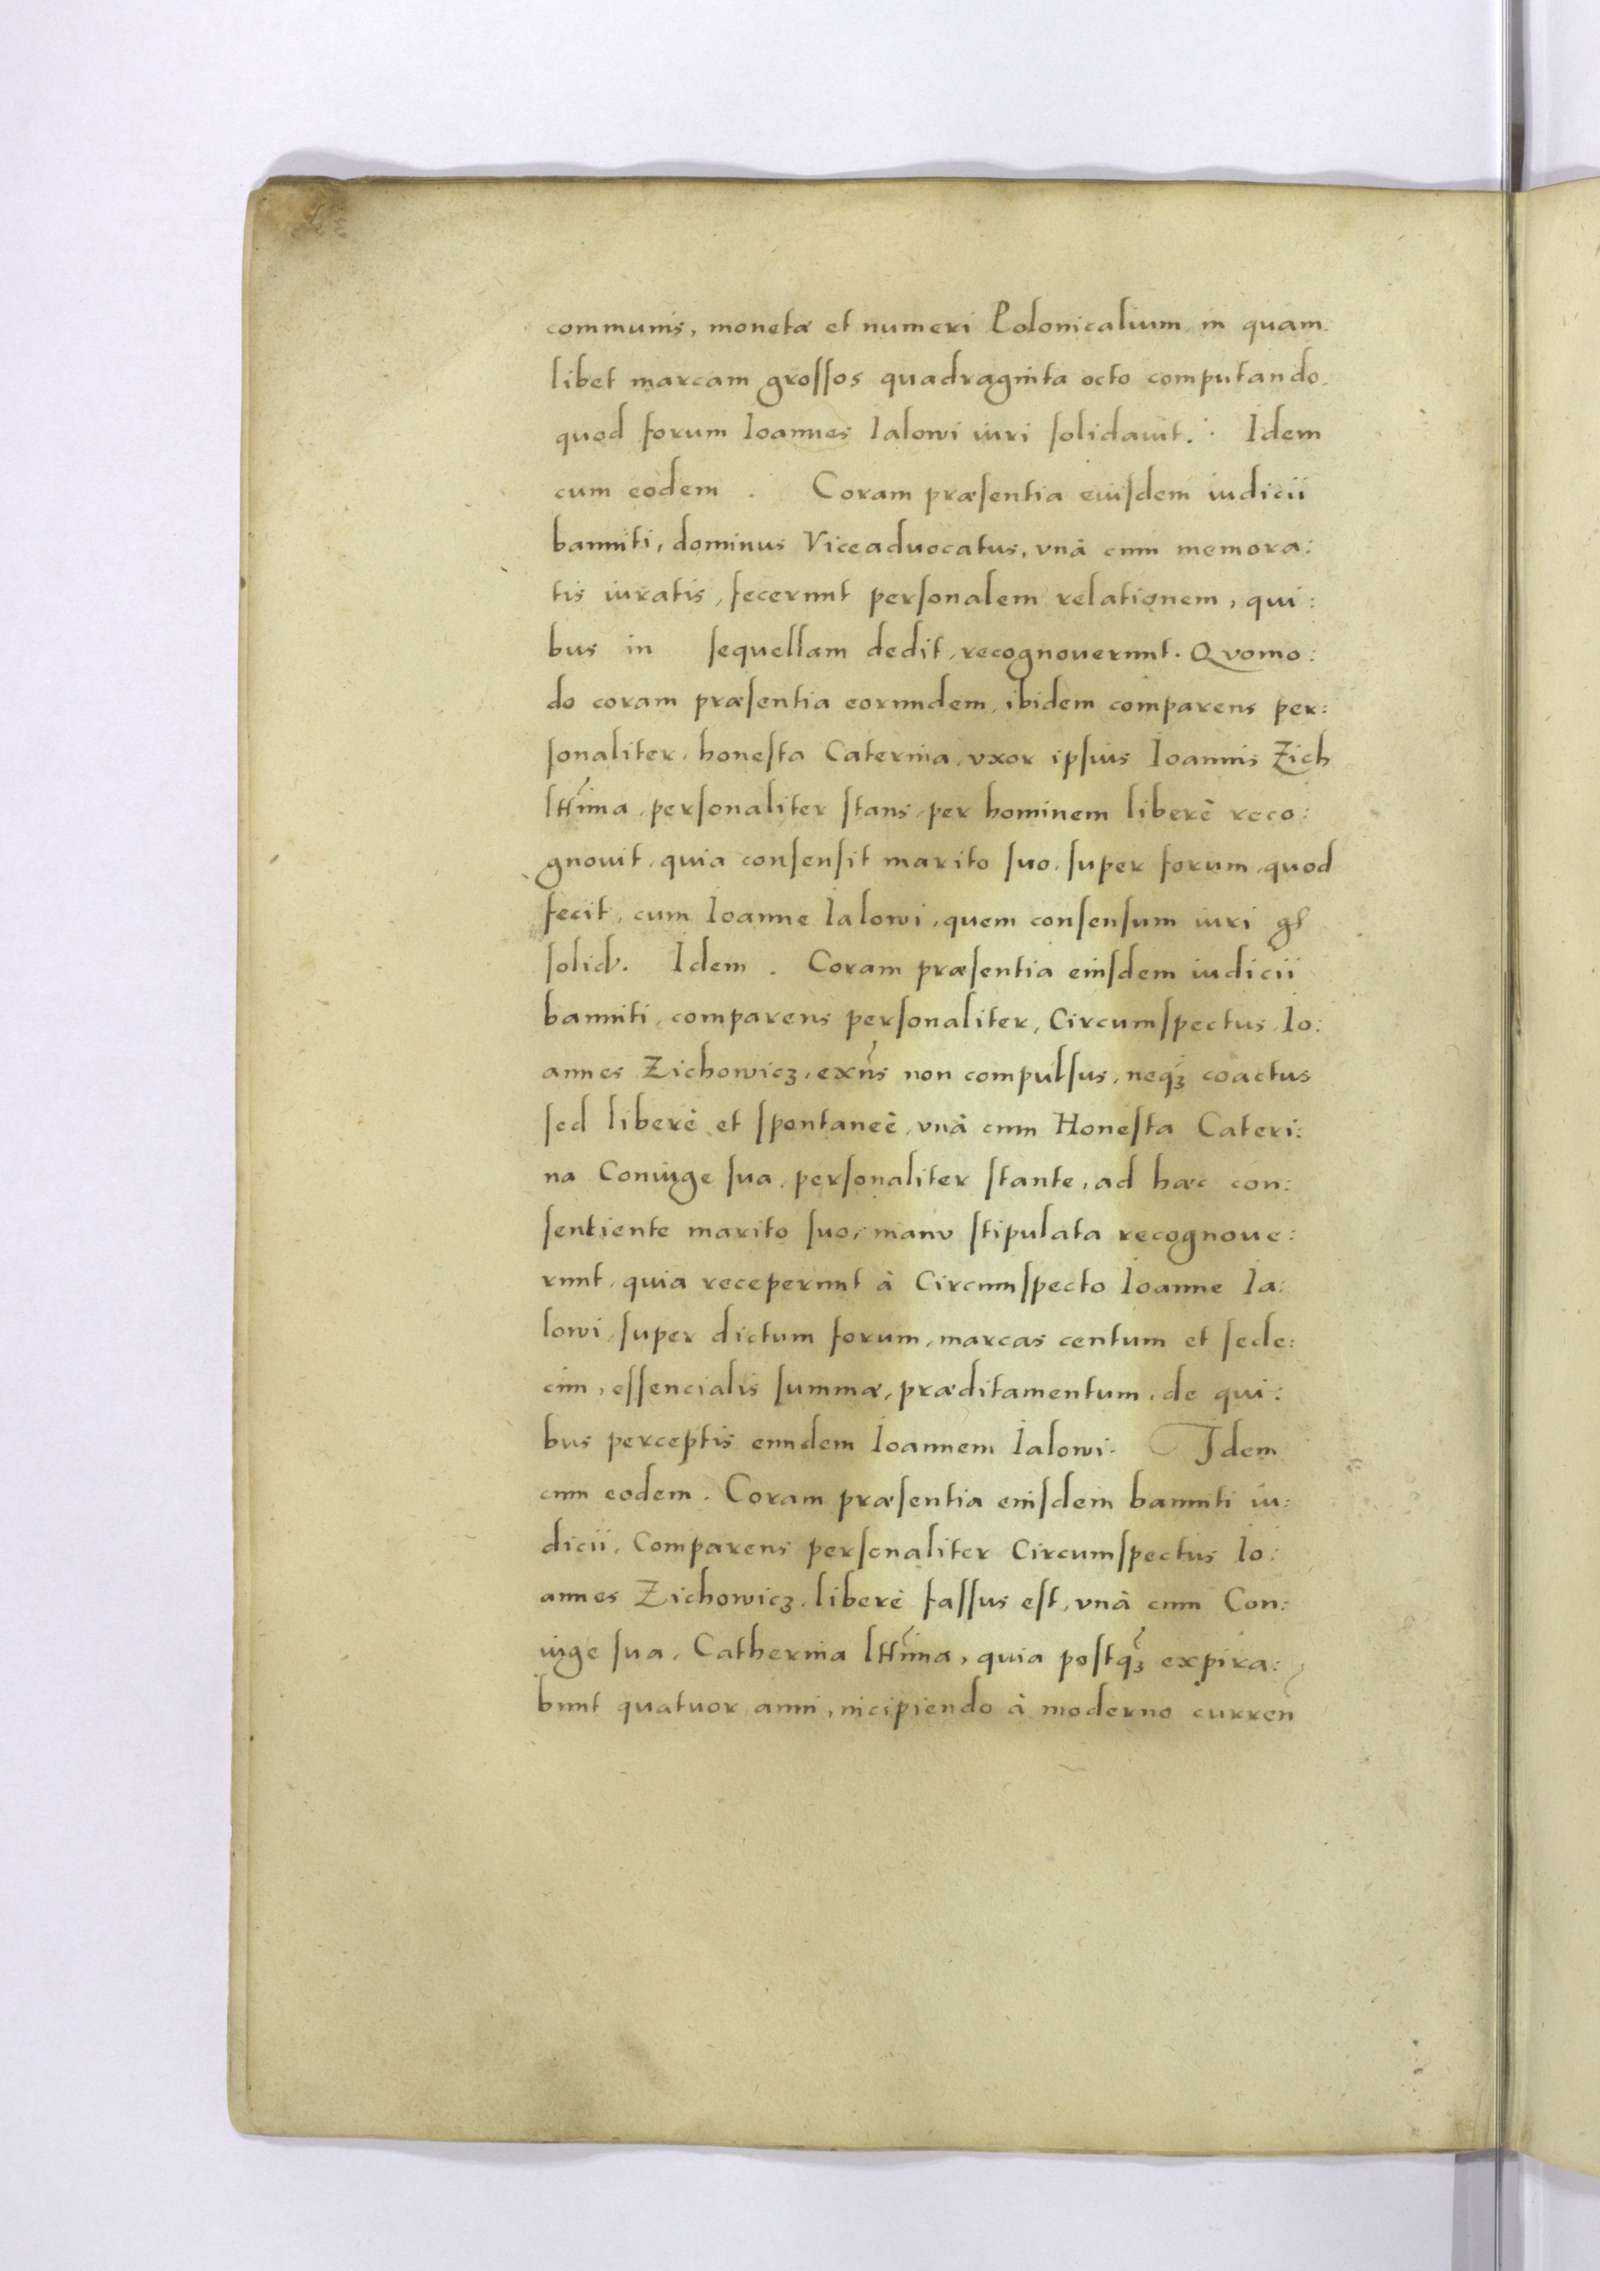 communis, monetæ et numeri Polonicalium in quam
libet marcam groſſos quadraginta octo computando.
quod forum Ioannes Ialowi iuri ſolidauit. Idem
cum eodem . Coram præſentia eiuſdem iudicii
banniti, dominus Viceaduocatus, vnà cum memora:
tis iuratis, fecerunt perſonalem relationem, qui:
bus in ſequellam dedit, recognouerunt. Qvomo:
do coram præſentia eorundem, ibidem comparens per:
ſonaliter, honeſta Caterina, vxor ipſius Ioannis Zich
lttima, perſonaliter ſtans, per hominem liberè reco:
gnouit, quia conſenſit marito ſuo, ſuper forum, quod
fecit, cum Ioanne Ialowi, quem conſenſum iuri
ſolid. Idem . Coram præſentia eiuſdem iudicii
banniti, comparens perſonaliter, Circumſpectus Io:
annes Zichowicz, exñs non compulſus, neqꝫ coactus
ſed liberè et ſpontaneè, vnà cum Honeſta Cateri:
na Coniuge ſua, perſonaliter ſtante, ad hæc con:
ſentiente marito ſuo, manv ſtipulata recognoue:
runt, quia receperunt à Circumſpecto Ioanne Ia:
lowi, ſuper dictum forum, marcas centum et ſede:
cim, eſſencialis ſummæ, præditamentum, de qui:
bus perceptis eundem Ioannem Ialowi. Idem
cum eodem. Coram præſentia eiuſdem banniti iu:
dicii, Comparens perſonaliter Circumſpectus Io:
annes Zichowicz, liberè faſſus eſt, vnà cum Con:
iuge ſua, Catherina lttima, quia poſtqꝫ expira:
bunt quatuor anni, incipiendo à moderno curren